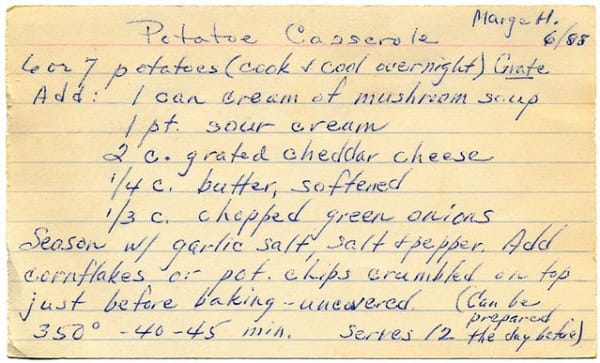 Marge H.
Potatoe Casserole 6/88
6 or 7 potatoes (cook & cool overnight) Grate
Add: 1 can cream of mushroom soup
1 pt. sour cream
2 c. grated cheddar cheese
1/4 c. butter, softened
1/3 c. chopped green onions
Season w/ garlic salt, salt & pepper. Add
cornflakes or pot. chips crumbled on top
just before baking - uncovered. (Can be
prepared
350° - 40 - 45 min. Serves 12 the day before)